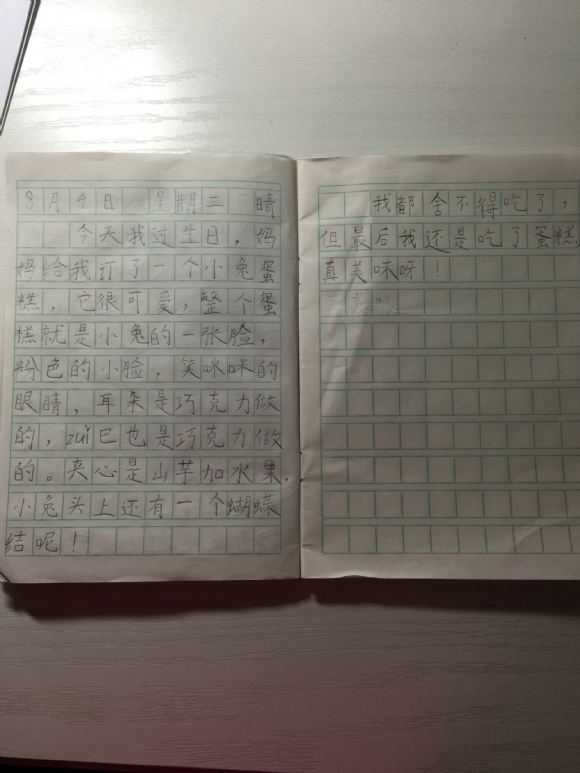 8月4日 星期二 晴
今天我过生日，妈
妈给我订了一个小兔蛋
糕，它很可爱，整个蛋
糕就是小兔的一张脸，
粉色的小脸，笑咪咪的
眼睛，耳朵是巧克力做
的，zuǐ巴也是巧克力做
的。夹心是山芋加水果，
小兔头上还有一个蝴蝶
结呢！
我都舍不得吃了，
但最后我还是吃了蛋糕，
真美味呀！